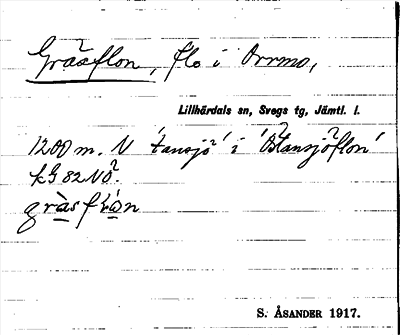 Gråsflon, flo i Orrmo,
Lillhärdals sn, Svegs tg, Jämtl. l.
1200 m. N 'tansjö' i 'Östansjöflon'
kG 82 NÖ.
gràsflòn
S. ÅSANDER 1917.